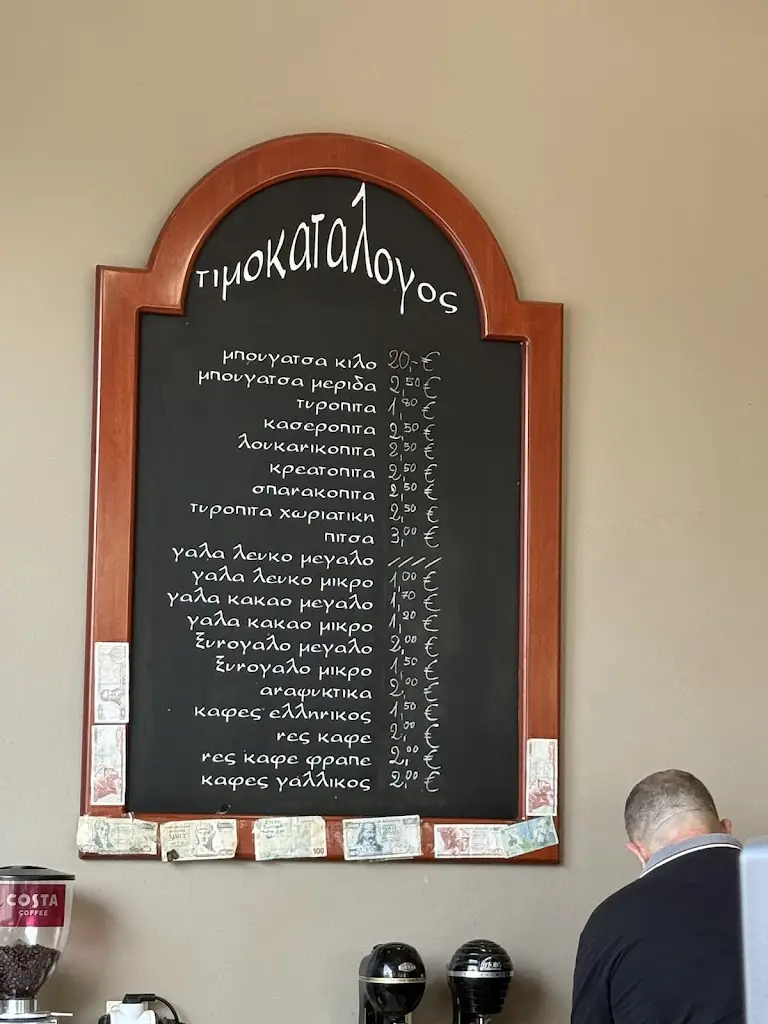 τιμοκαταλογος
μπουγατσα κιλο 20,-€
μπουγατσα μεριδα 2,50€
τυροπιτα 1,80€
κασεροπιτα 2,50€
λουκανικοπιτα 2,50€
κρεατοπιτα 2,50€
σπανακοπιτα 2,50€
τυροπιτα χωριατικη 2,50€
πιτσα 3,00€
γαλα λευκο μεγαλο /////
γαλα λευκο μικρο 1,00€
γαλα κακαο μεγαλο 1,70€
γαλα κακαο μικρο 1,20€
ξυνογαλο μεγαλο 2,00€
ξυνογαλο μικρο 1,50€
αναψυκτικα 2,00€
καφες ελληνικος 1,50€
νες καφε 2,00€
νες καφε φραπε 2,00€
καφες γαλλικος 2,00€
100
COSTA
COFFEE